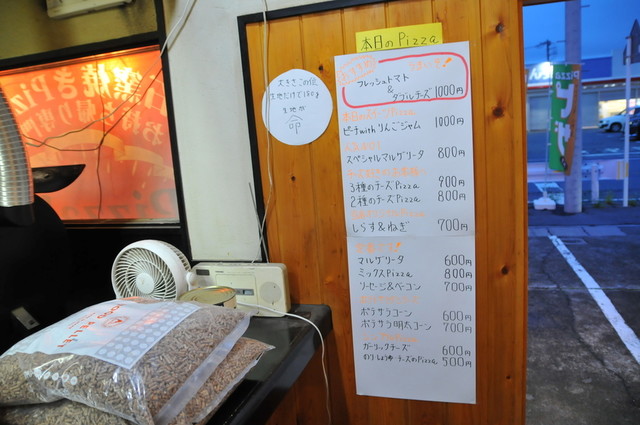 本日のPizza
フレッシュトマト
&
ダブルチーズ 1000円
ピーチwithりんごジャム 1000円
スペシャルマルゲリータ 800円
3種のチーズPizza 900円
2種のチーズPizza 800円
しらす&ねぎ 700円
マルゲリータ 600円
ミックスPizza 800円
ソーセージ&ベーコン 700円
ポテサラコーン 600円
ポテサラ明太コーン 700円
ガーリックチーズ 600円
のりしょうゆチーズのPizza 500円
大きさこの位
生地が
命
石窯焼きPiz
お持ち帰り専門
Pizza
Pizza
ピザ